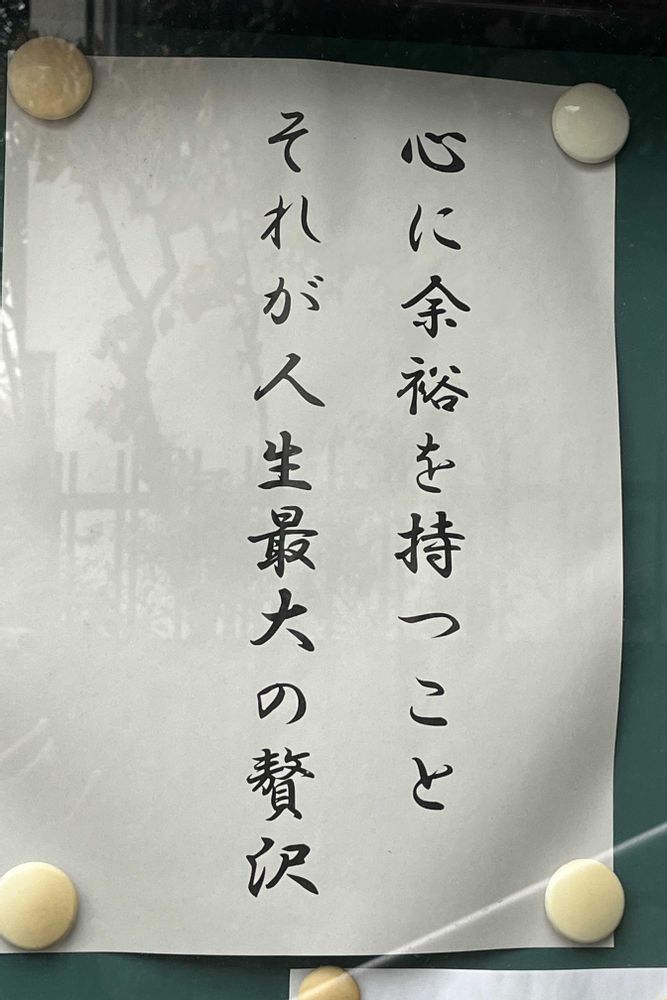 心に余裕を持つこと
それが人生最大の贅沢